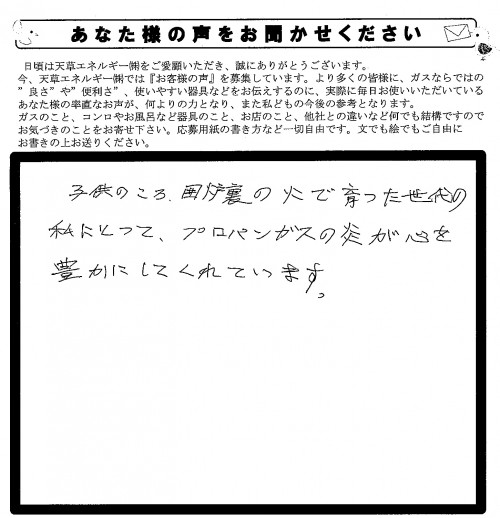 あなた様の声をお聞かせください
日頃は天草エネルギー㈱をご愛顧いただき、誠にありがとうございます。
今、天草エネルギー㈱では『お客様の声』を募集しています。より多くの皆様に、ガスならではの
”良さ”や”便利さ”、使いやすい器具などをお伝えするのに、実際に毎日お使いいただいている
あなた様の率直なお声が、何よりの力となり、また私どもの今後の参考となります。
ガスのこと、コンロやお風呂など器具のこと、お店のこと、他社との違いなど何でも結構ですので
お気づきのことをお寄せ下さい。応募用紙の書き方など一切自由です。文でも絵でもご自由に
お書きの上お送りください。
子供のころ、囲炉裏の火で育った世代の
私にとって、プロパンガスの炎が心を
豊かにしてくれています。